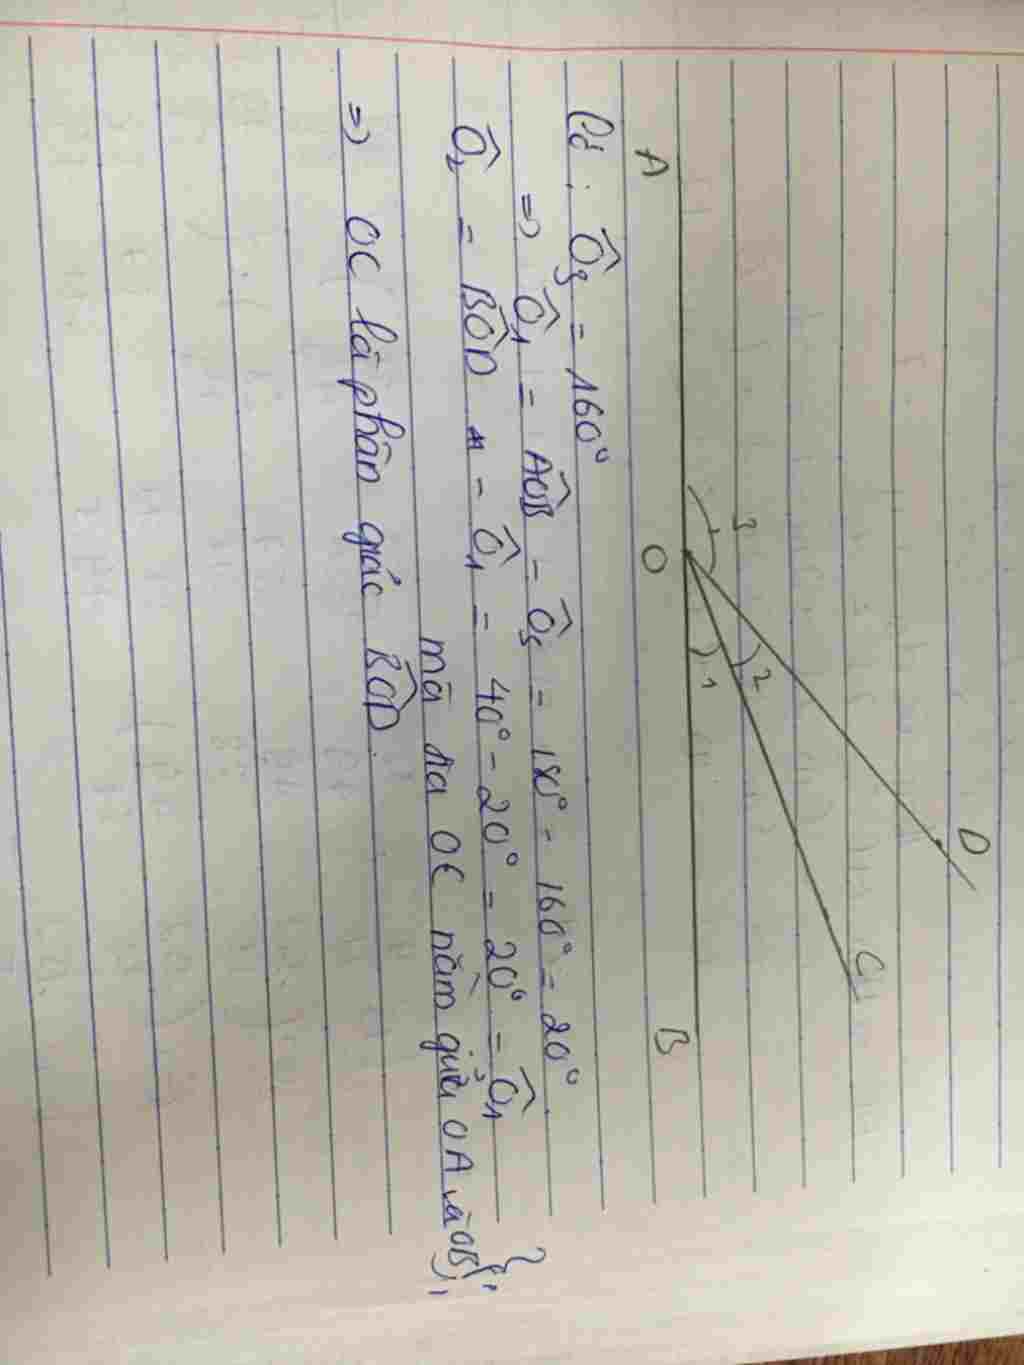 D
C
3
2
1
A
O
B
Có : Ô₃ = 160°
=> Ô₁ = AÔB - Ô₃ = 180° - 160° = 20°
Ô₂ = BÔD - Ô₁ = 40° - 20° = 20° = Ô₁
mà tia OC nằm giữa OA và OB
=> OC là phân giác BÔD.